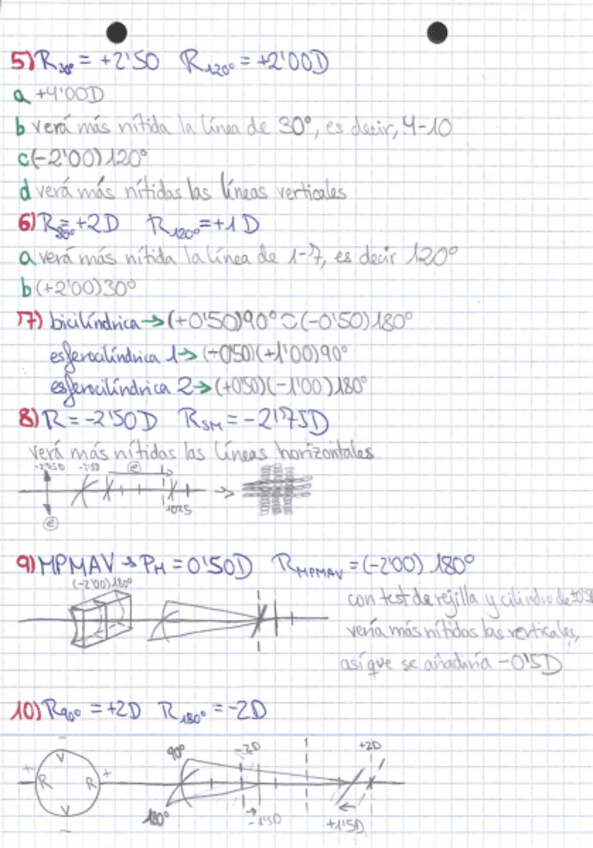 5) R30° = +2'50 R120° = +2'00D
a +4'00D
b verá más nítida la línea de 30°, es decir, 4-10
c (-2'00) 120°
d verá más nítidas las líneas verticales
6) R30° = +2D R120° = +1D
a verá más nítida la línea de 1-7, es decir 120°
b (+2'00) 30°
7) bicilíndrica → (+0'50) 90° ⊂ (-0'50) 180°
esferocilíndrica 1 → (-0'50) (+1'00) 90°
esferocilíndrica 2 → (+0'50) (-1'00) 180°
8) R = -2'50D RSM = -2'75D
verá más nítidas las líneas horizontales
9) MPMAV → PM = 0'50D RMPMAV = (-2'00) 180°
(-2'00) 180°
con test de rejilla y cilindro de
vería más nítidas las verticales,
así que se añadiría -0'5D
10) R90° = +2D R180° = -2D
90° -2D +2D
+ V +
R R
V
180° -1'5D +1'5D